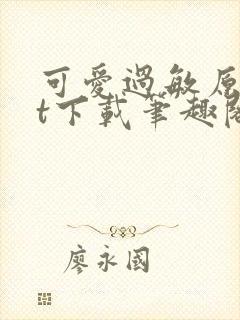 可愛過敏原
t下載筆趣閣
廖永國